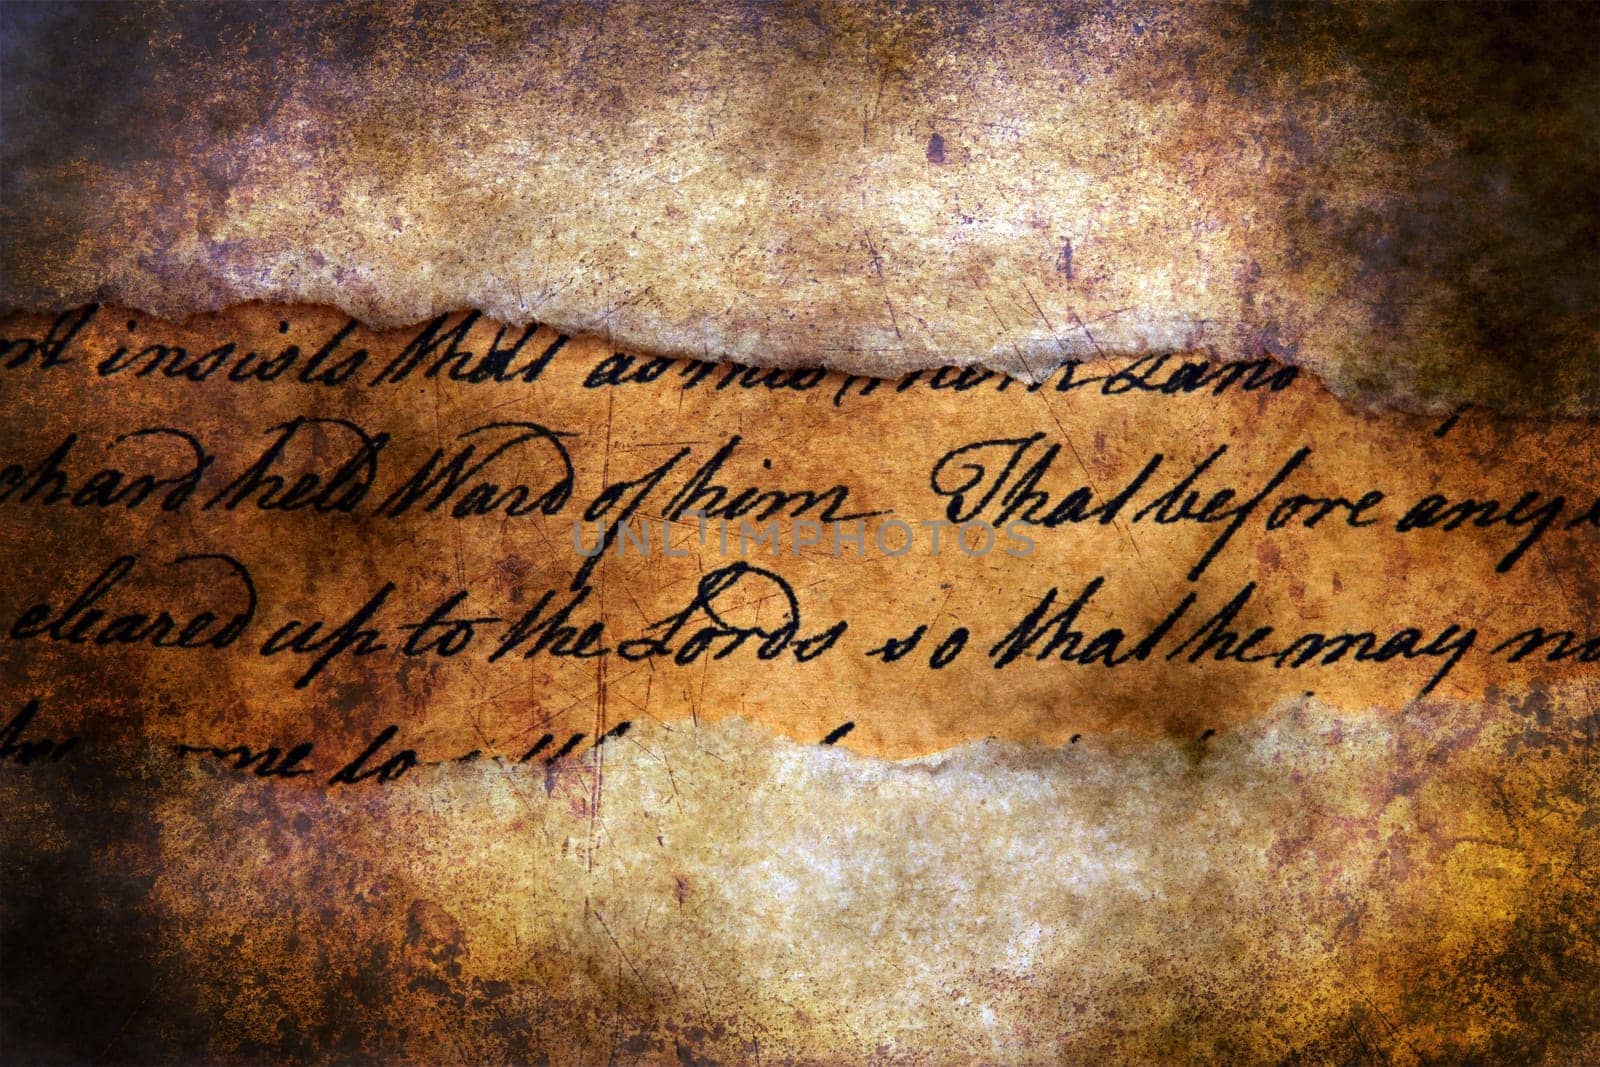 insists that as this think Land
chard held Ward of him That before any
cleared up to the Lords so that he may
me to
UNLIMPHOTOS